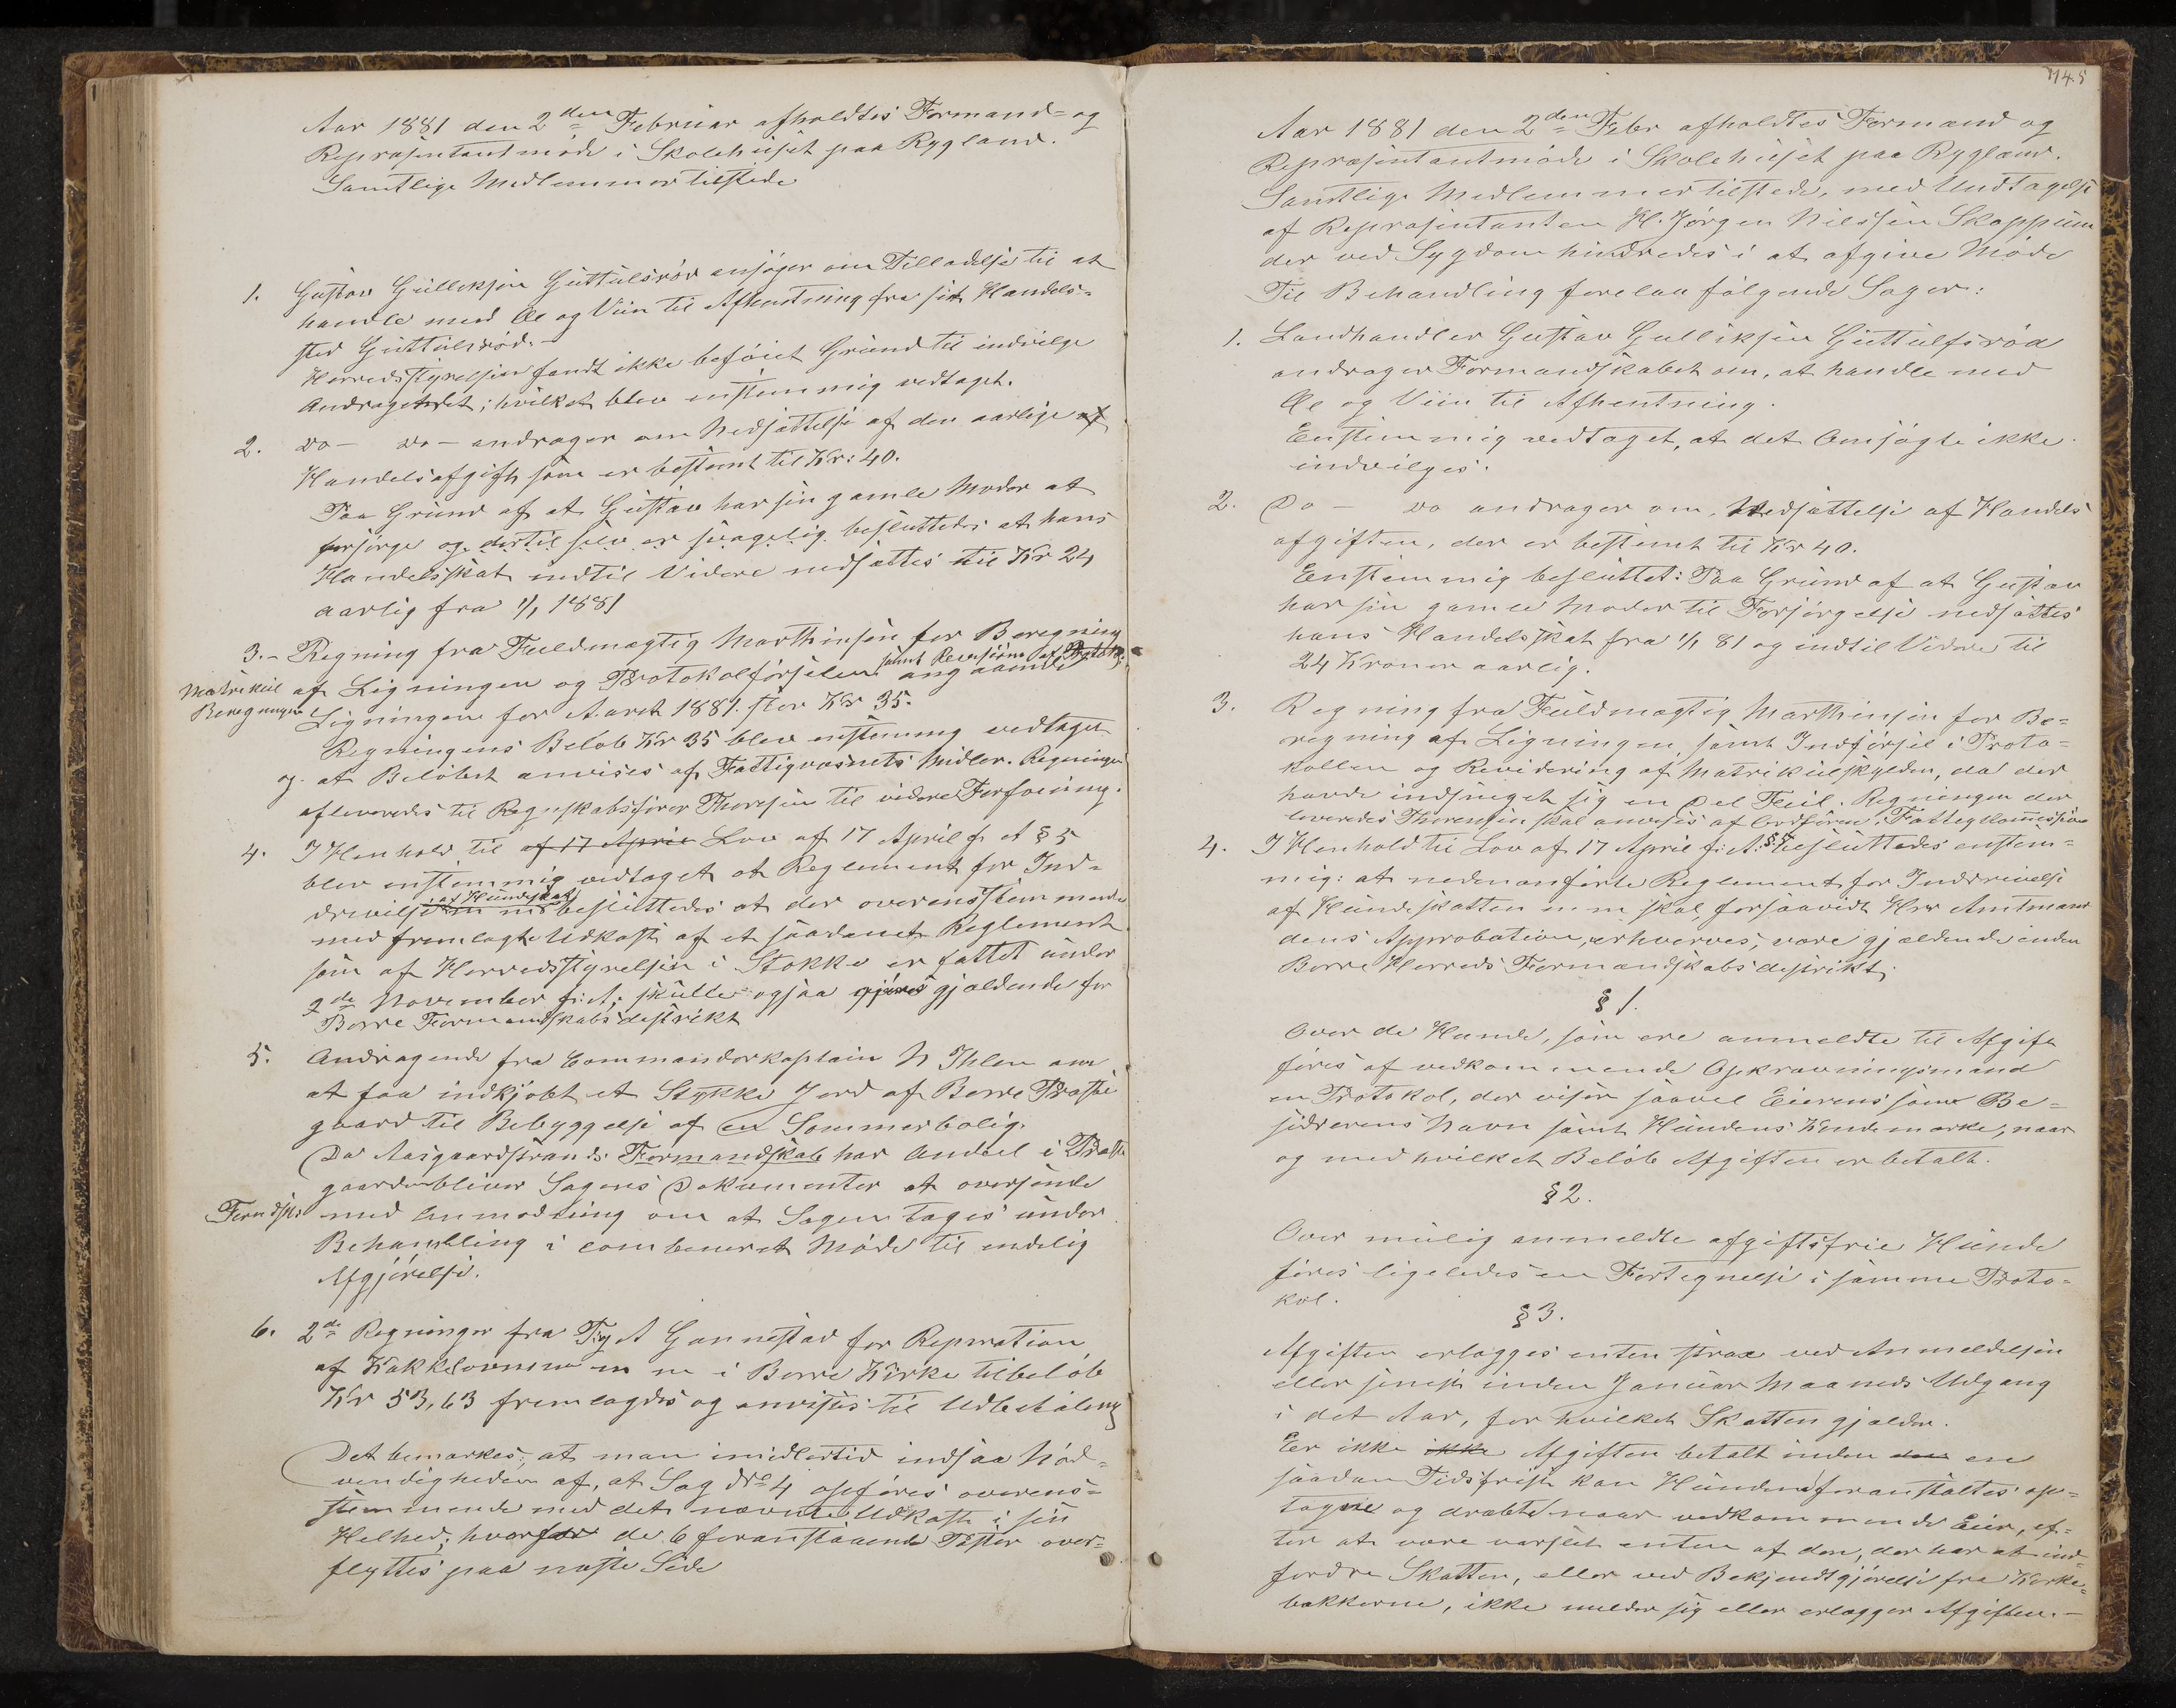 Aar 1881 den 2den Februar afholdtes Formand= og
Repræsentantmøde i Skolehuset paa Rygland.
Samtlige Medlemmer tilstede
1. Gustav Gulliksen Guttulsrød ansøger om Tilladelse til at
handle med Øl og Viin til Afhentning fra sit Handels-
sted Guttulsrød.-
Herredsstyrelsen fandt ikke beføiet Grund til indvilge
Andragendet; hvilket blev enstemmig vedtaget.
2. do- do- andrager om Nedsættelse af den aarlige af
Handelsafgift som er bestemt til Kr: 40.
Paa Grund af at Gustav har sin gamle Moder at
forsørge og dertil selv er svagelig besluttedes at hans
Handelsskat indtil Videre nedsættes til Kr 24
aarlig fra 1/1 1881
3.- Regning fra Fuldmægtig Marthinsen for Beregning
samt Revision af
Matrikul af Ligningen og Protokolførselen angaaende
Beregningen Ligningen for Aaret 1881. stor Kr 35.
Regningens Beløb Kr 35 blev enstemmig vedtaget
og at Beløbet anvises af Fattigvæsnets Midler. Regningen
afleveredes til Regnskabsfører Thoresen til videre Forføining.
4. I Henhold til af 17 April Lov af 17 April f. A § 5
blev enstemmig vedtaget at Reglement for Ind-
af Hundeskat
drivelse m m besluttedes at der overensstemmende
med fremlagte Udkast af et saadant Reglement
som af Herredsstyrelsen i Stokke er fattet under
9de November f: A; skulle ogsaa gjøres gjældende for
Borre Formandskabsdistrikt
5. Andragende fra Commandørkaptain N Ihlen om
at faa indkjøbt et Stykke Jord af Borre Præste
gaard til Bebyggelse af en Sommerbolig.
Da Aasgaardstrands Formandskab har Andeel i Præste
gaarden bliver Sagens Dokumenter at oversende
Formdsk: med Anmodning om at Sagen tages under
Behandling i combineret Møde til endelig
Afgjørelse.
6. 2de Regninger fra T A Gannestad for Repration
af Kakkelovnene m m i Borre Kirke tilbeløb
Kr 53,63 fremlagdes og anvistes til Udbetaling
Det bemærkes; at man imidlertid indsaa Nød-
vendigheden af, at Sag No 4 opføres overens-
stemmende med det nævnte Udkast i sin
Helhed; hvorfor de 6 foranstaaende Poster over-
flyttes paa næste Side
145
Aar 1881 den 2den Febr afholdtes Formand og
Repræsentantmøde i Skolehuset paa Rygland.
Samtlige Medlemmer tilstede, med Undtagelse
af Repræsentanten H. Jørgen Nilssen Skoppum
der ved Sygdom hindredes i at afgive Møde
Til Behandling forelaa følgende Sager:
1. Landhandler Gustav Gulliksen Guttulfsrød
andrager Formandskabet om, at handle med
Øl og Viin til Afhentning.
Enstemmig vedtaget, at det Ansøgte ikke
indvilges.
2. Do - do andrager om, Nedsættelse af Handels
afgiften, der er bestemt til Kr 40.
Enstemmig besluttet: Paa Grund af at Gustav
har sin gamle Moder til Forsørgelse nedsættes
hans Handelsskat fra 1/1 81 og indtil Videre til
24 Kroner aarlig.
3. Regning fra Fuldmægtig Marthinsen for Be=
regning af Ligningen, samt Indførsel i Proto=
kollen og Revidering af Matrikulskylden, da der
havde indsneget sig en Del Feil. Regningen der
leveredes Thoresen skal anvises af Ordføren i Fattigkomission
4. I Henhold til Lov af 17 April f: A: § 5 besluttedes enstem=
mig: at nedenanførte Reglement for Inddrivelse
af Hundeskatten m m skal, forsaavidt Hrr Amtmand
dens Approbation, erhverves, være gjældende inden
Borre Herreds Formandskabsdistrikt.
§ 1.
Over de Hunde, som ere anmeldte til Afgift
føres af vedkommende Opkrævningsmand
en Protokol, der viser saavel Eierens som Be=
sidderens Navn samt Hundens Kendemærke, naar
og med hvilket Beløb Afgiften er betalt.
§ 2.
Over mulig anmeldte afgiftsfrie Hunde
føres ligeledes en Fortegnelse i samme Proto=
kol.
§ 3.
Afgiften erlægges enten strax ved Anmeldelsen
eller senest inden Januar Maaneds Udgang
i det Aar, for hvilket Skatten gjælder.
Er ikke ikke Afgiften betalt inden den en
saadan Tidsfrist kan Hunden foranstaltes op=
tagne og dræbte naar vedkommende Eier, ef=
ter at være varslet enten af den, der har at ind=
fordre Skatten, eller ved Bekjendtgjørelse fra Kirke=
bakkerne, ikke melder sig eller erlægger Afgiften.-